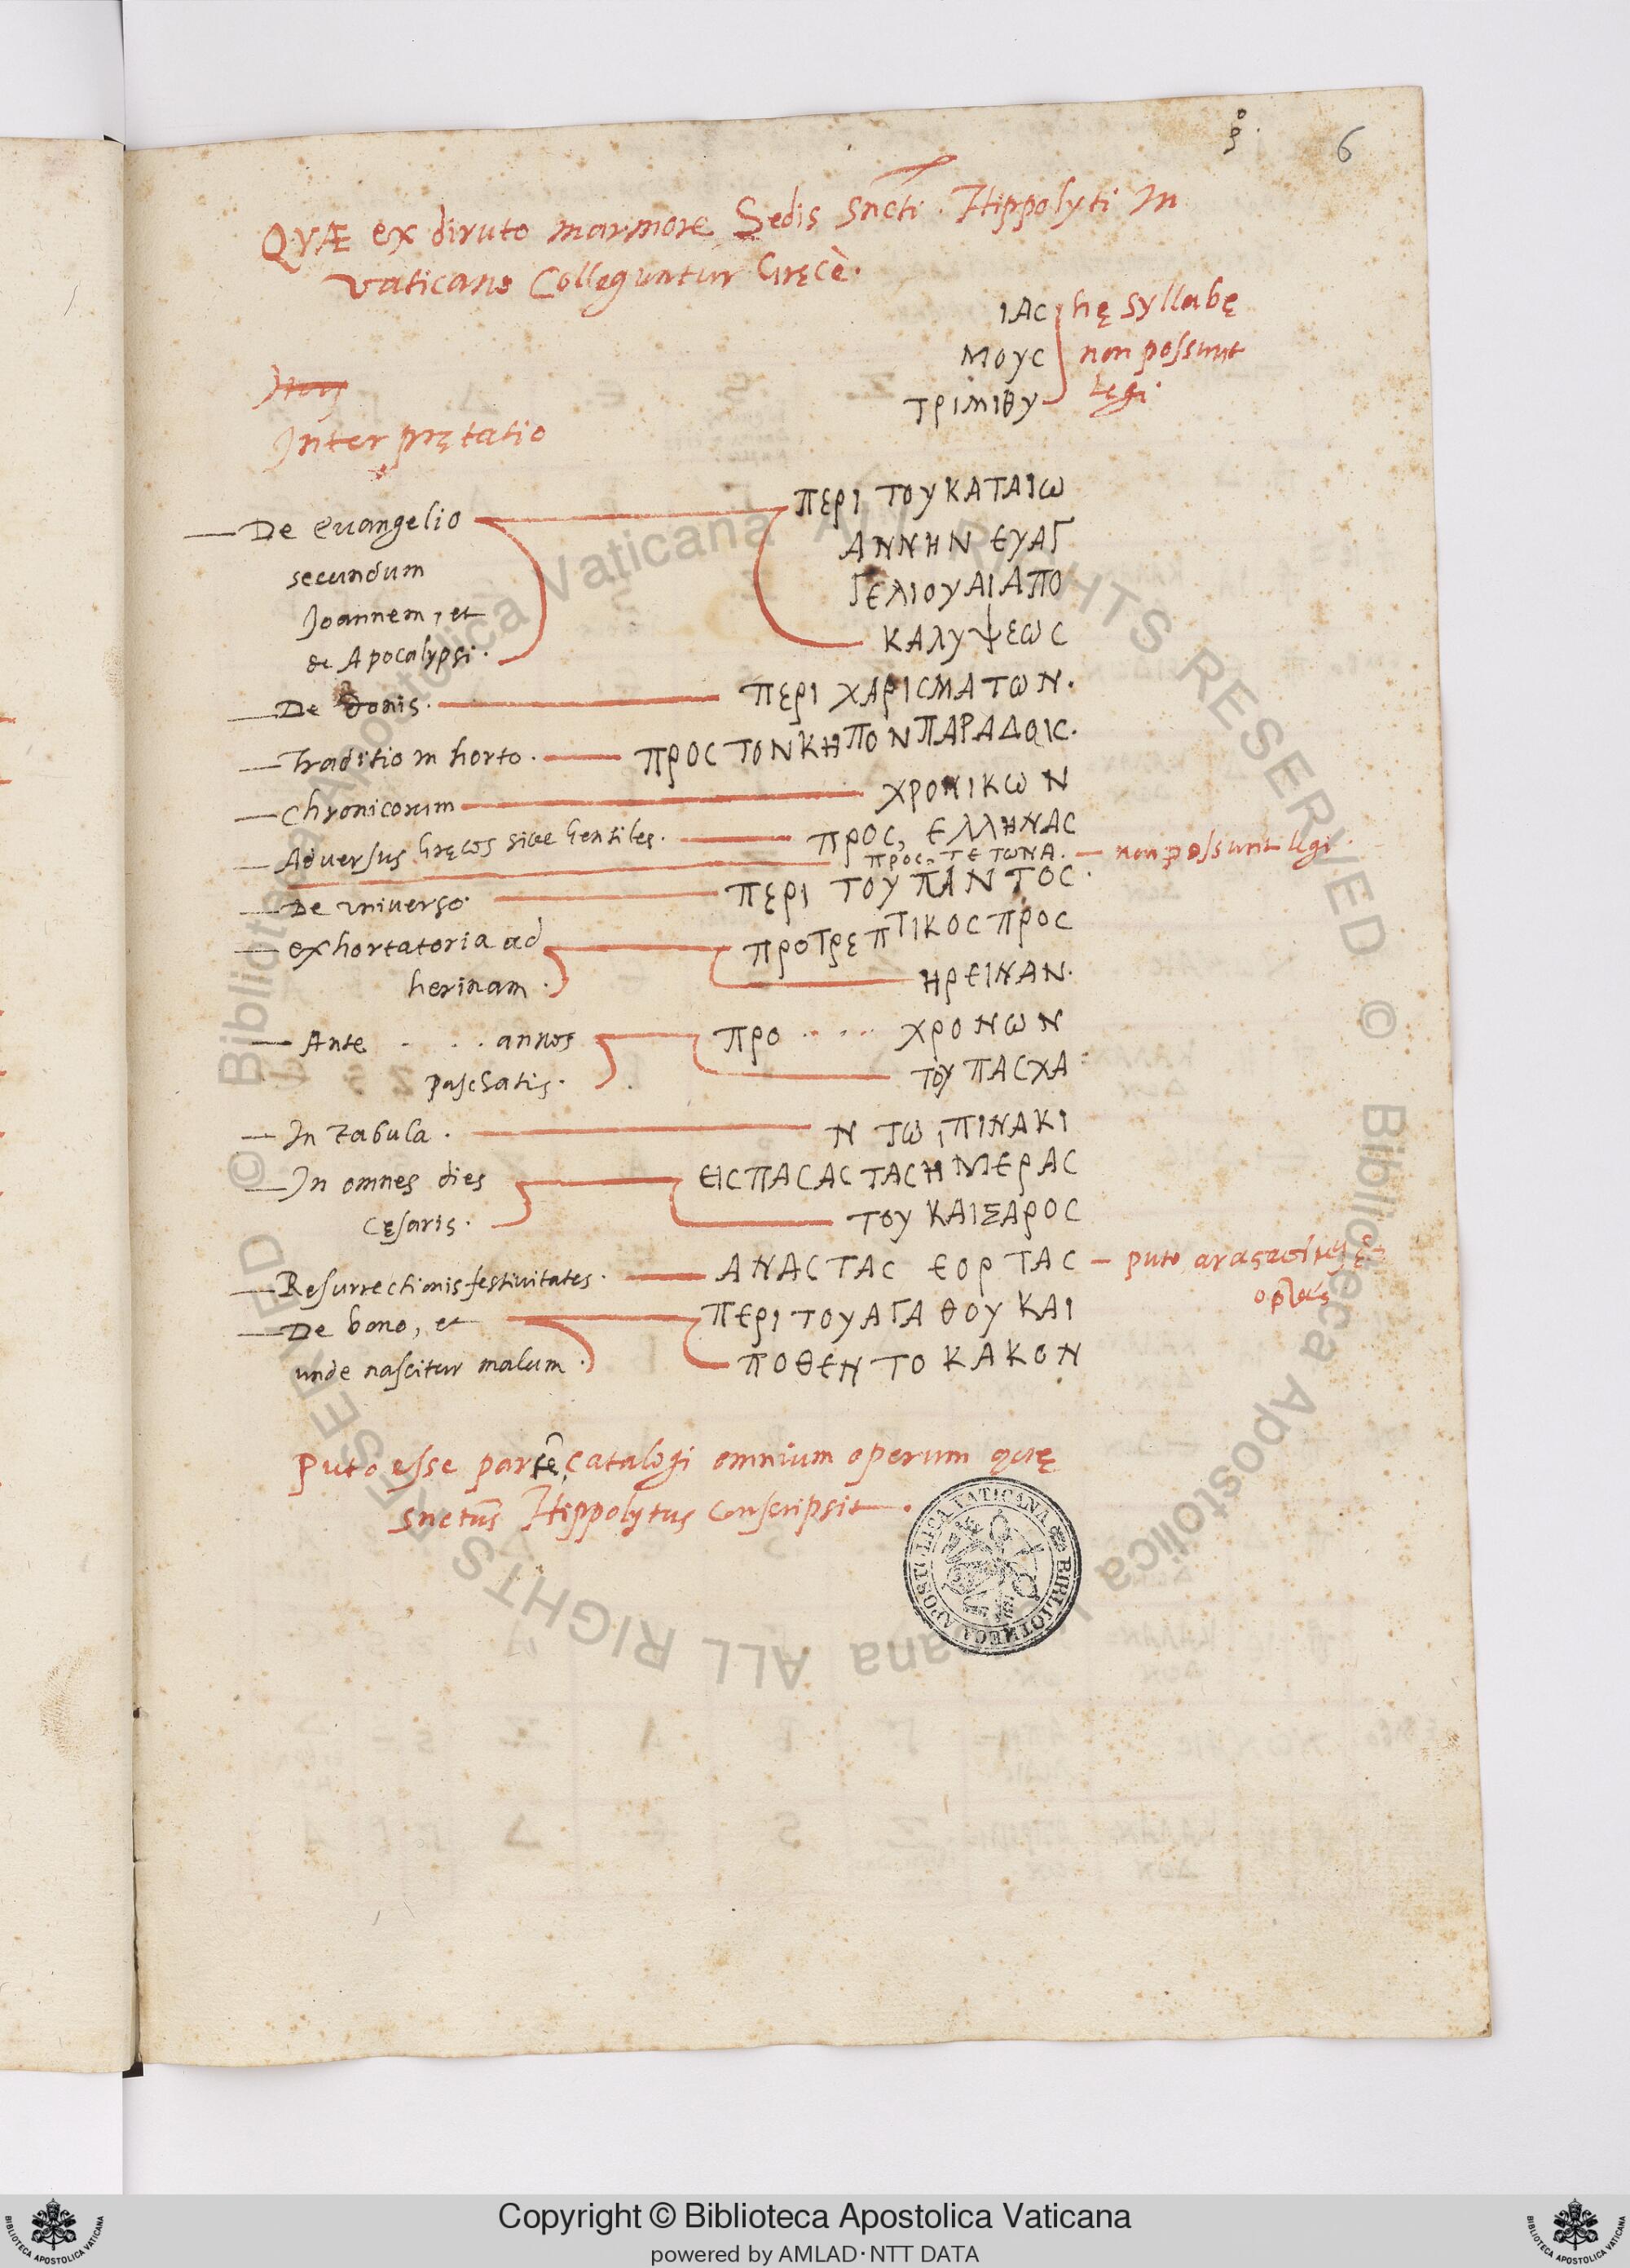 6
QVÆ ex diruto marmore Sedis Sncti. Hippolyti In
vaticano Colleguntur Gręcè.
ΙΑC hę syllabę
ΜΟΥC non possunt
ΤΡΙΜΙΘΥ legi.
Interprętatio
De evangelio ΠΕΡΙ ΤΟΥ ΚΑΤΑ ΙΩ
secundum ΑΝΝΗΝ ΕΥΑΓ
Joannem, et ΓΕΛΙΟΥ ΑΙ ΑΠΟ
de Apocalypsi. ΚΑΛΥΨΕΩC
De donis. ΠΕΡΙ ΧΑΡΙCΜΑΤΩΝ.
Traditio in horto. ΠΡΟC ΤΟΝ ΚΗΠΟΝ ΠΑΡΑΔΟΙC.
Chronicorum ΧΡΟΝΙΚΩΝ
Adversus Gręcos sive Gentiles. ΠΡΟC, ΕΛΛΗΝΑC
ΠΡΟC. ΤΕ ΤΩΝΑ. non possunt legi.
De universo. ΠΕΡΙ ΤΟΥ ΠΑΝΤΟC.
exhortatoria ad ΠΡΟΤΡΕΠΤΙΚΟC ΠΡΟC
herinam. ΗΡΕΙΝΑΝ.
Ante . . . annos ΠΡΟ . . . . ΧΡΟΝΩΝ
paschatis. ΤΟΥ ΠΑCΧΑ
In tabula. Ν ΤΩΙ ΠΙΝΑΚΙ
In omnes dies ΕΙC ΠΑCΑC ΤΑC ΗΜΕΡΑC
Cęsaris. ΤΟΥ ΚΑΙΣΑΡΟC
Resurrectionis festivitates. ΑΝΑCΤΑC ΕΟΡΤΑC puto
De bono, et ΠΕΡΙ ΤΟΥ ΑΓΑΘΟΥ ΚΑΙ
unde nascitur malum. ΠΟΘΕΝ ΤΟ ΚΑΚΟΝ
Puto esse partē catalogi omnium operum quę
snctus Hippolytus conscripsit.
BIBLIOTHECA APOSTOLICA VATICANA
© Biblioteca Apostolica Vaticana ALL RIGHTS RESERVED
© Biblioteca Apostolica Vaticana ALL RIGHTS RESERVED
Copyright © Biblioteca Apostolica Vaticana
powered by AMLAD·NTT DATA
BIBLIOTECA APOSTOLICA VATICANA
BIBLIOTECA APOSTOLICA VATICANA